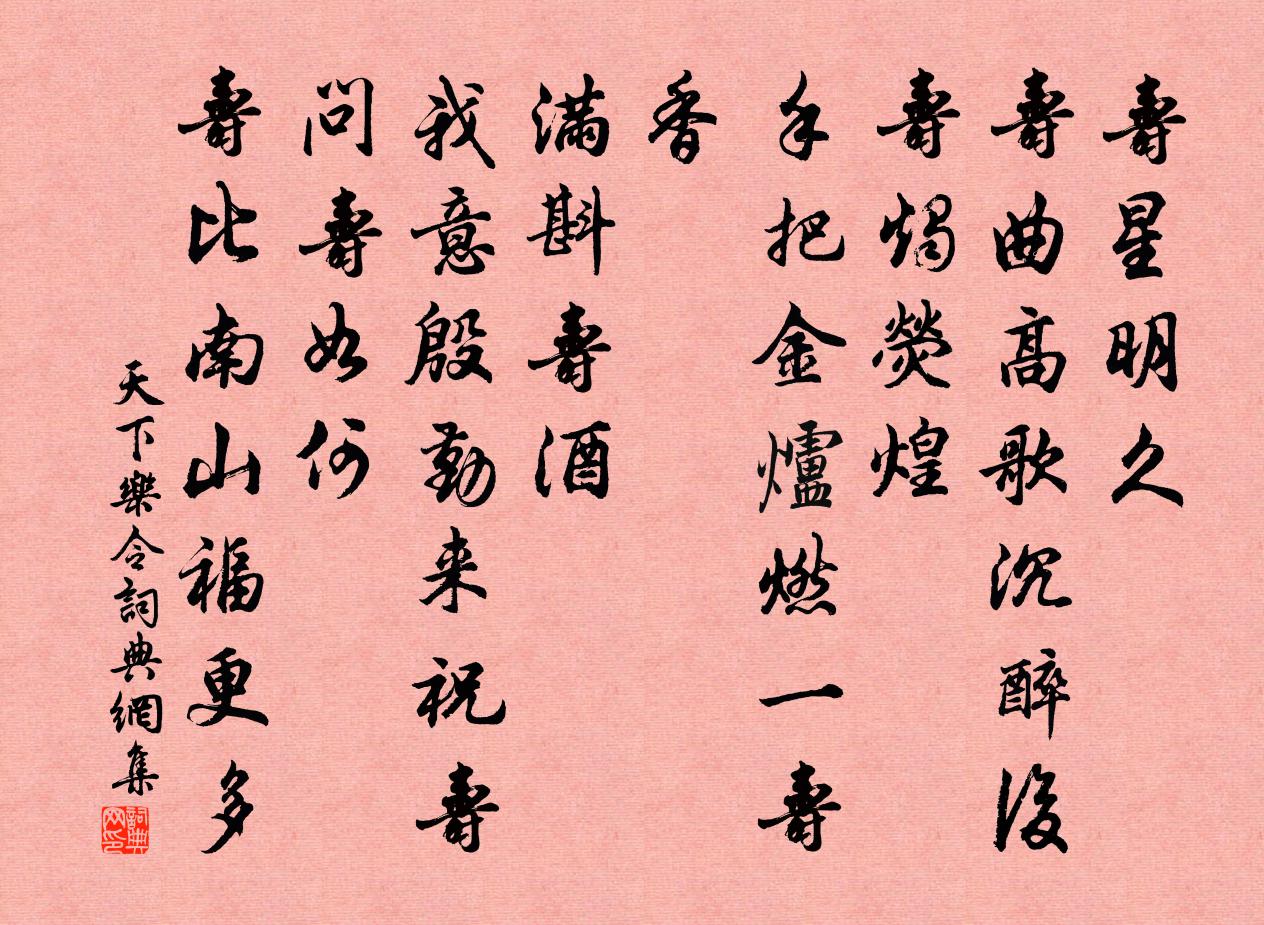 壽星明久
壽曲高歌沉醉後
壽燭熒煌
手把金爐燃一壽
香
滿斟壽酒
我意殷勤来祝壽
問壽如何
壽比南山福更多
天下樂令詞典網集
詞典
网印